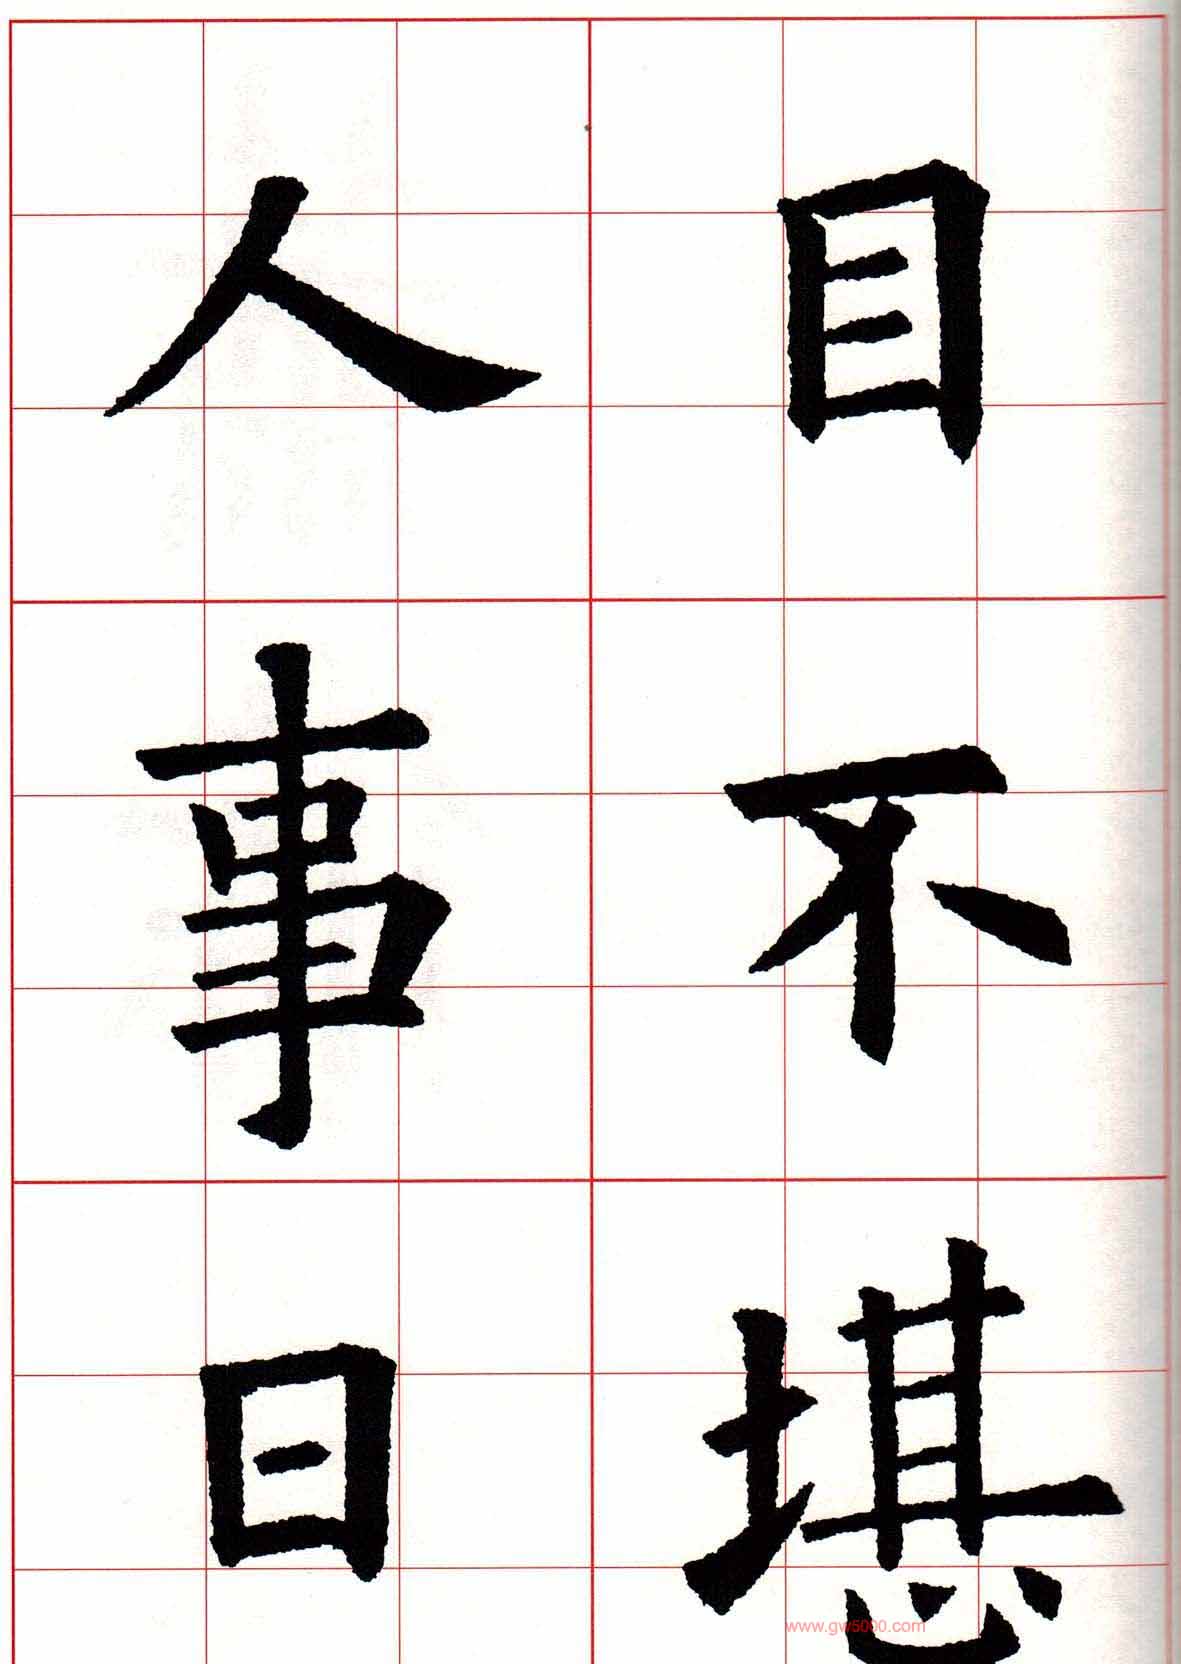 目不堪
人事日
www.gw5000.com